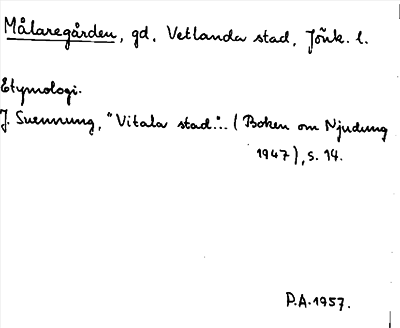 Målaregården, gd, Vetlanda stad, Jönk. l.
Etymologi.
J. Svennung, "Vitala stad". (Boken om Njudung
1947), s. 14.
P.A. 1957.